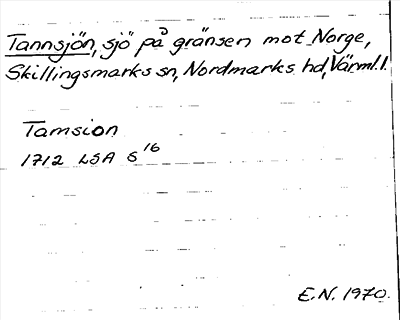 Tannsjön, sjö på gränsen mot Norge,
Skillingsmarks sn, Nordmarks hd, Värml.l.
Tamsion
1712 LSA S 16
E.N. 1970.